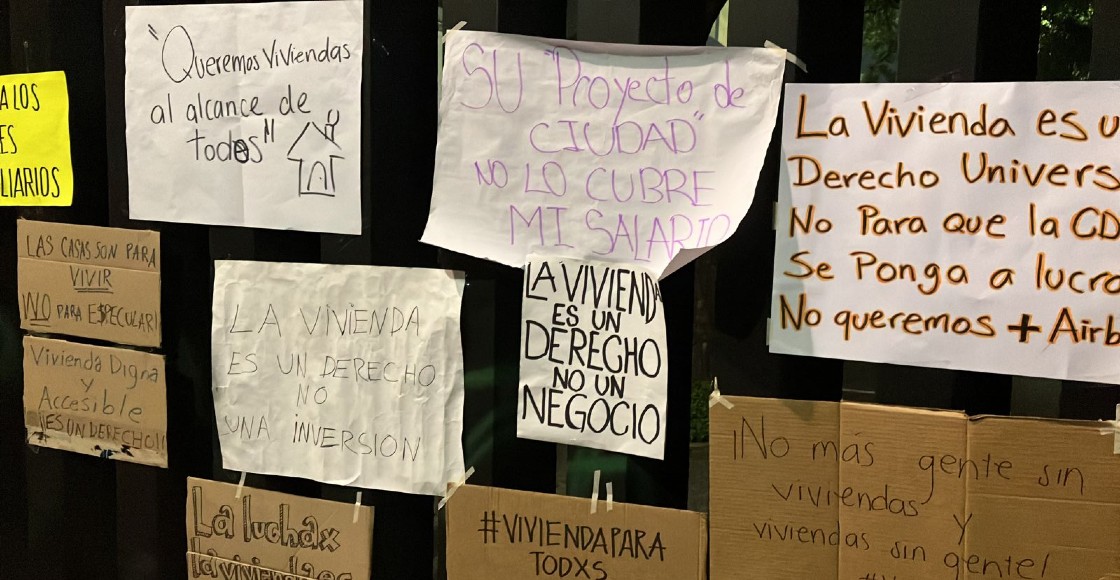 A LOS
ES
LIARIOS
"Queremos Viviendas
al alcance de
todes"
SU "Proyecto de
CIUDAD"
NO LO CUBRE
MI SALARIO
La Vivienda es u
Derecho Univers
No Para que la CD
Se Ponga a lucra
No queremos + Airb
LAS CASAS SON PARA
VIVIR
NO PARA ESPECULAR!
Vivienda Digna
y
Accesible
¡ES UN DERECHO!!
LA VIVIENDA
ES UN DERECHO
NO
UNA INVERSION
LA VIVIENDA
ES UN
DERECHO
NO UN
NEGOCIO
La lucha x
la vivienda es
#VIVIENDAPARA
TODXS
¡No más gente sin
viviendas y
viviendas sin gente!